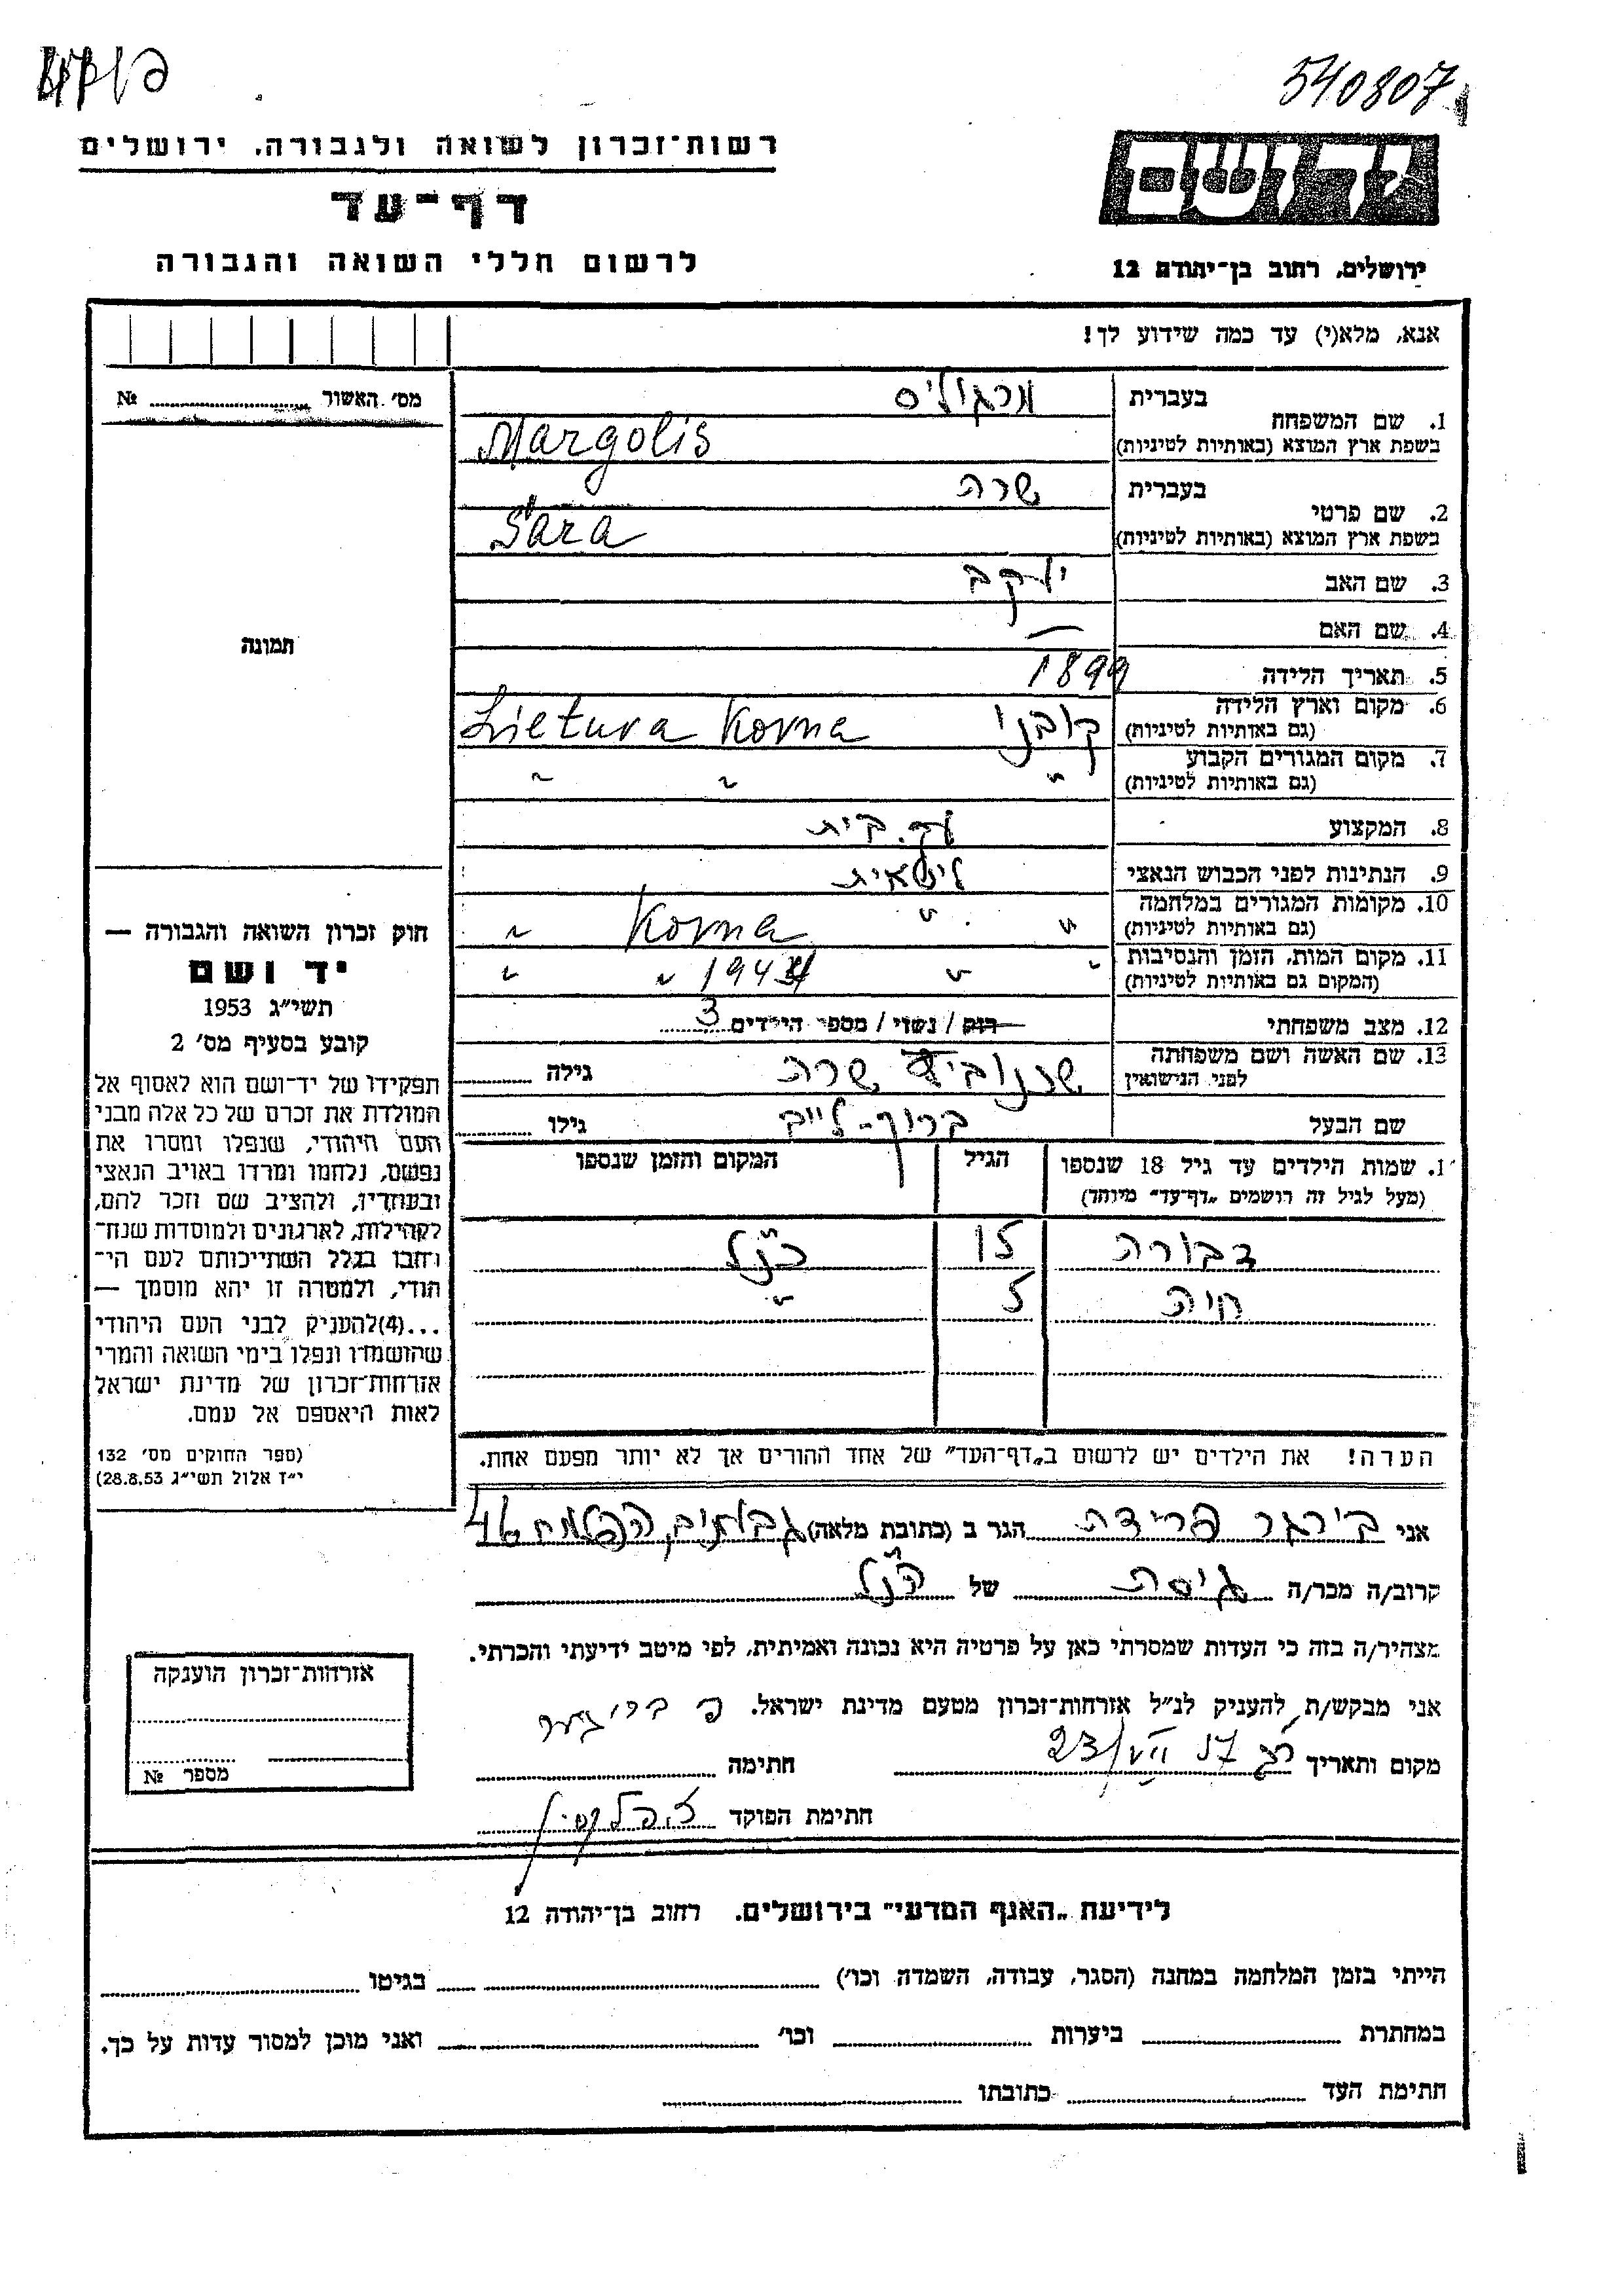 540807
רשות־זכרון לשואה ולגבורה, ירושלים
יד ושם
דף־עד
לרשום חללי השואה והגבורה
ירושלים, רחוב בן־יהודה 12
אנא, מלא(י) עד כמה שידוע לך!
מס׳ האשור №
בעברית מרגוליס
1. שם המשפחה
בשפת ארץ המוצא (באותיות לטיניות) Margolis
בעברית שרה
2. שם פרטי
בשפת ארץ המוצא (באותיות לטיניות) Sara
3. שם האב יעקב
4. שם האם —
תמונה
5. תאריך הלידה 1899
6. מקום וארץ הלידה
(גם באותיות לטיניות) קובנו Kovna Lietuva
7. מקום המגורים הקבוע
(גם באותיות לטיניות) " " "
8. המקצוע עק. בית
9. הנתינות לפני הכבוש הנאצי ליטאית
10. מקומות המגורים במלחמה
(גם באותיות לטיניות) " " Kovna "
11. מקום המות, הזמן והנסיבות
(המקום גם באותיות לטיניות) " " 1944 " "
12. מצב משפחתי רוק / נשוי / מספר הילדים 3
13. שם האשה ושם משפחתה
לפני הנישואין שרה גילה
שם הבעל ברוך-לייב גילו
1. שמות הילדים עד גיל 18 שנספו
(מעל לגיל זה רושמים „דף־עד״ מיוחד)
הגיל
המקום והזמן שנספו
דבורה 15 כנ״ל
חיה 5 "
הערה! את הילדים יש לרשום ב„דף־העד״ של אחד ההורים אך לא יותר מפעם אחת.
חוק זכרון השואה והגבורה —
יד ושם
תשי״ג 1953
קובע בסעיף מס׳ 2
תפקידו של יד־ושם הוא לאסוף אל
המולדת את זכרם של כל אלה מבני
העם היהודי, שנפלו ומסרו את
נפשם, נלחמו ומרדו באויב הנאצי
ובעוזריו, ולהציב שם וזכר להם,
לקהילות, לארגונים ולמוסדות שנח־
רחבו בגלל השתייכותם לעם הי־
הודי, ולמטרה זו יהא מוסמך —
...(4)להעניק לבני העם היהודי
שהושמדו ונפלו בימי השואה והמרי
אזרחות־זכרון של מדינת ישראל
לאות היאספם אל עמם.
(ספר החוקים מס׳ 132
י״ז אלול תשי״ג 28.8.53)
אני בירגר פרידה הגר ב (כתובת מלאה) גבעתיים, הפלמח 46
קרוב/ה מכר/ה גיסה של הנ״ל
מצהיר/ה בזה כי העדות שמסרתי כאן על פרטיה היא נכונה ואמיתית, לפי מיטב ידיעתי והכרתי.
אני מבקש/ת להעניק לנ״ל אזרחות־זכרון מטעם מדינת ישראל.
מקום ותאריך חתימה
חתימת הפוקד
אזרחות־זכרון הוענקה
מספר №
לידיעת „האגף המדעי״ בירושלים. רחוב בן־יהודה 12
הייתי בזמן המלחמה במחנה (הסגר, עבודה, השמדה וכו׳) בגיטו
במחתרת ביערות וכו׳ ואני מוכן למסור עדות על כך.
חתימת העד כתובתו